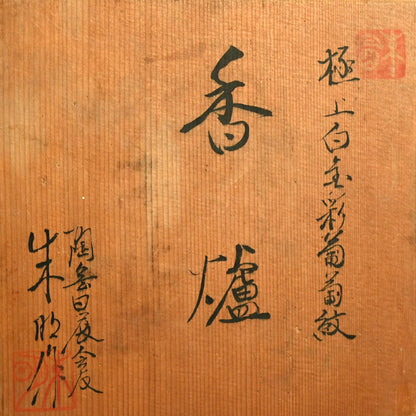 極上白金彩葡萄紋
香爐
陶芸日展会友
朱明作